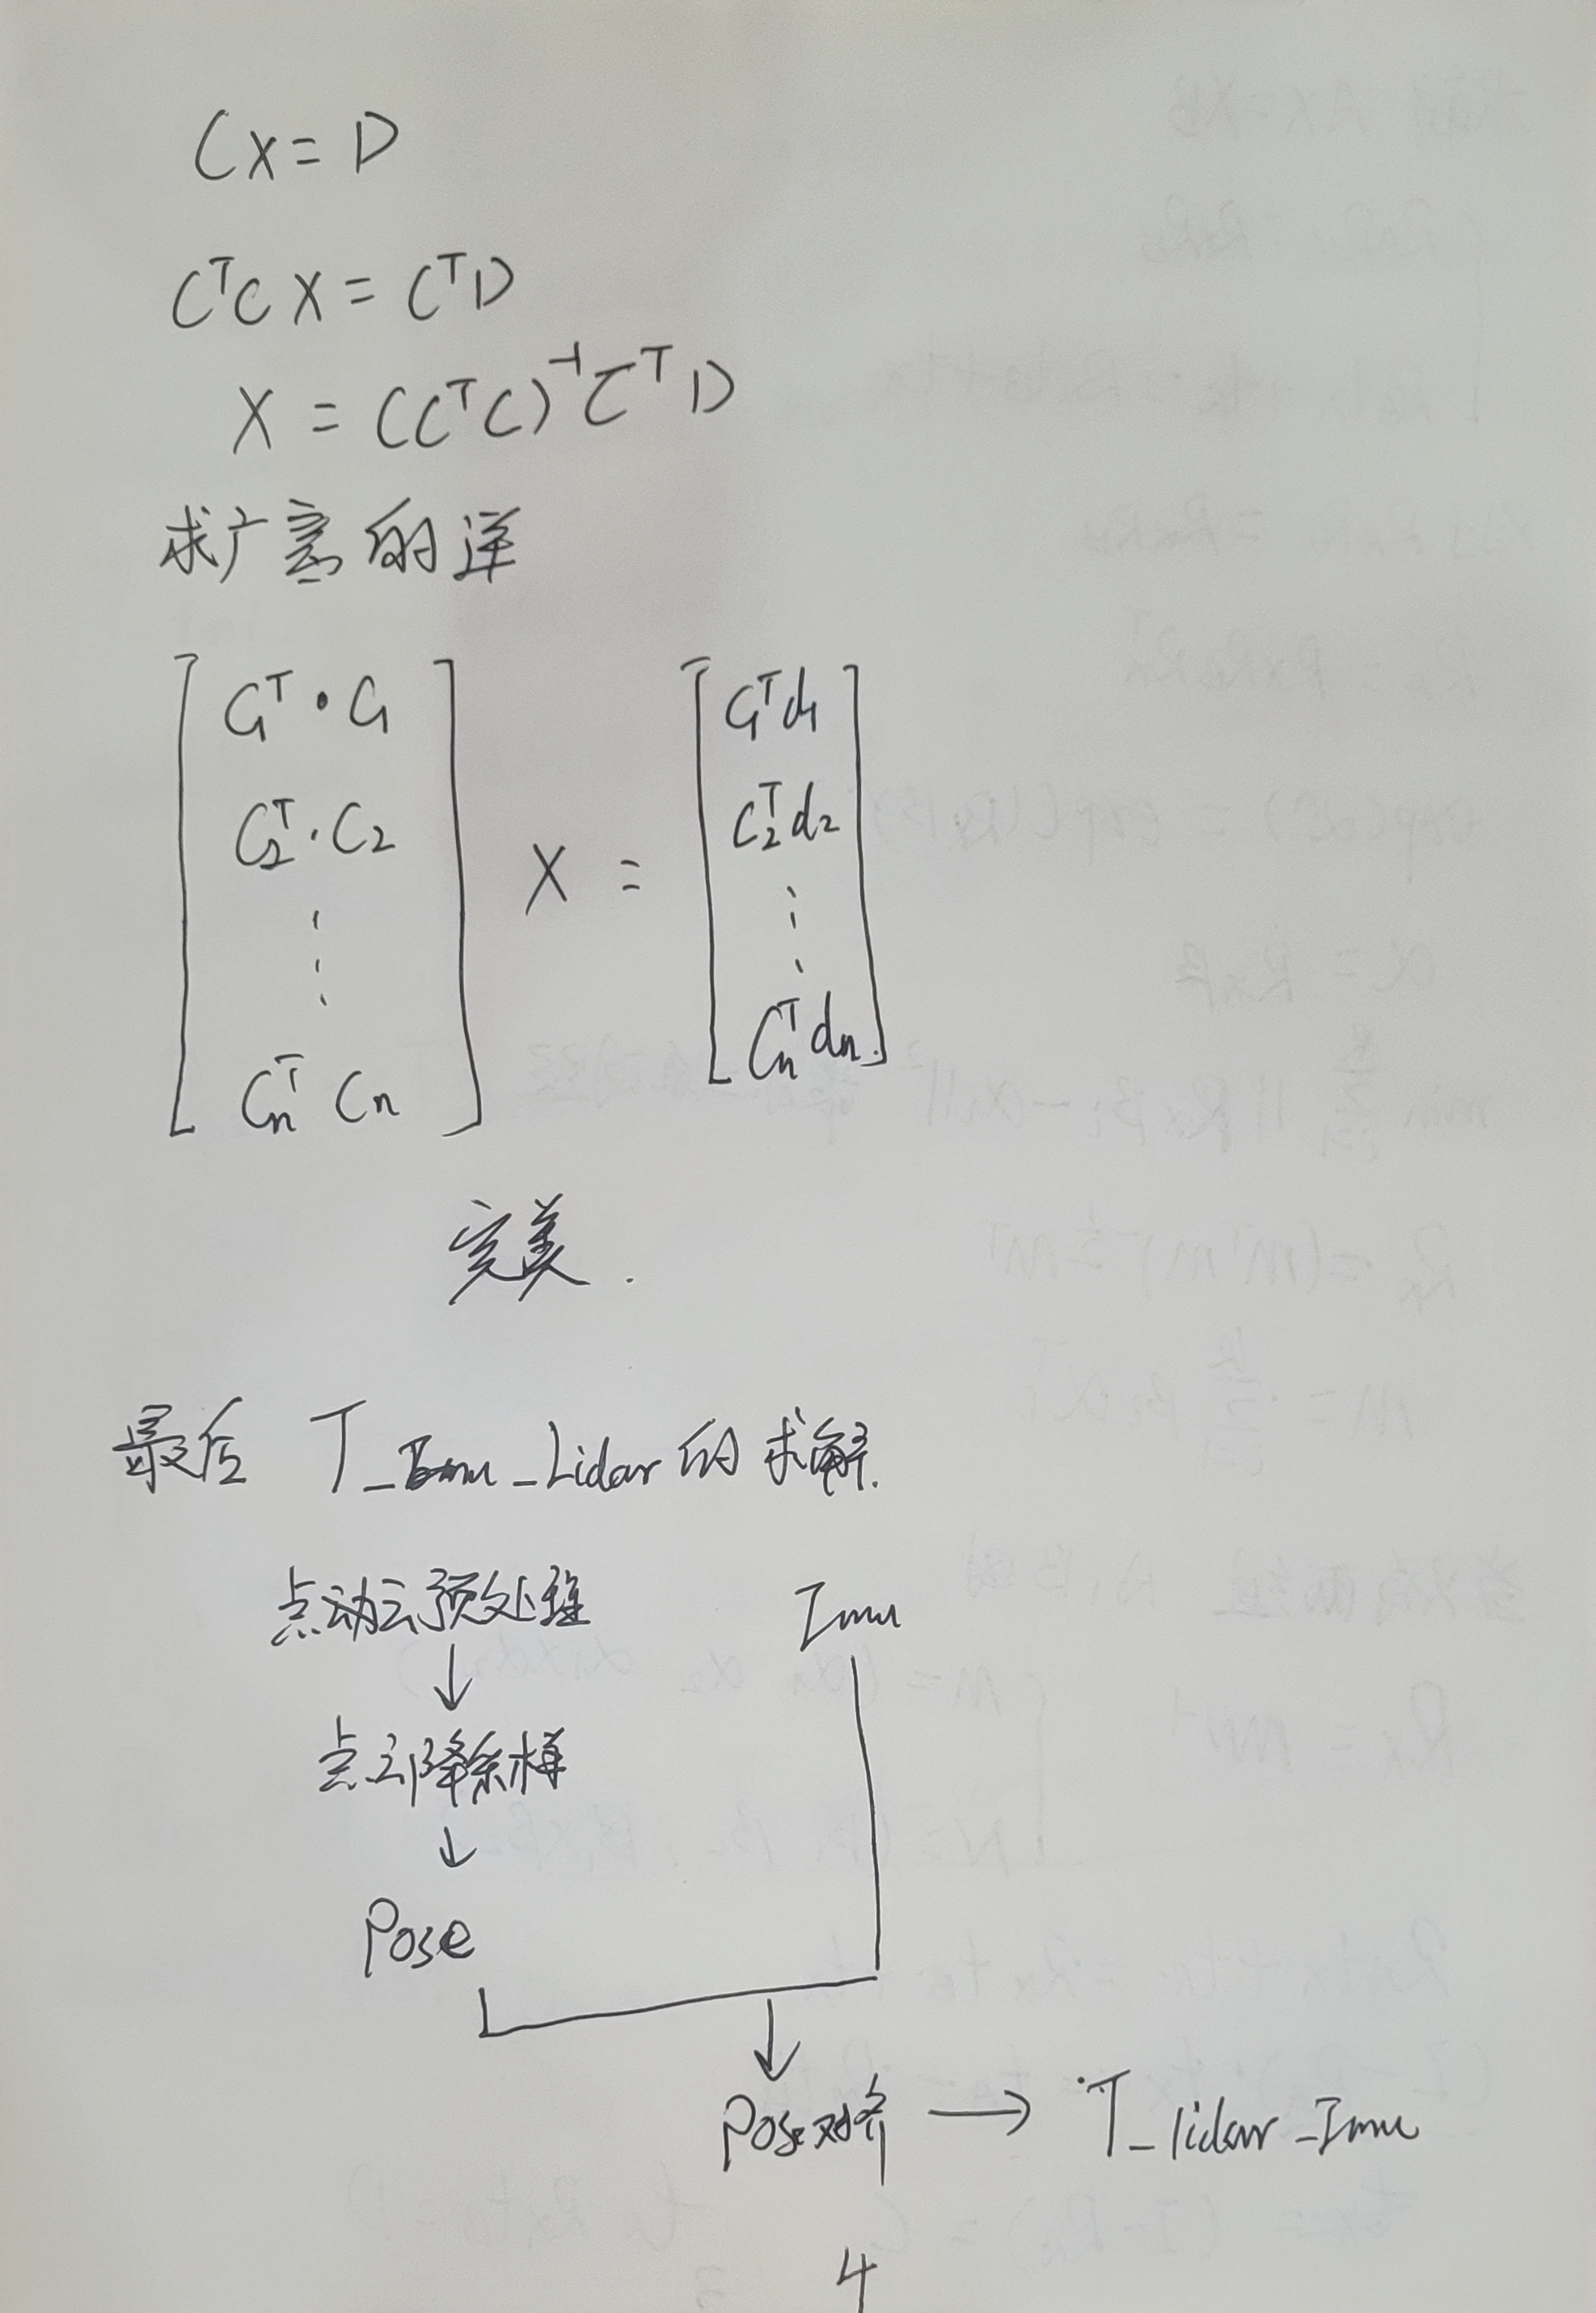 Cx = D
CᵀC X = CᵀD
X = (CᵀC)⁻¹CᵀD
求广意的逆
[ C₁ᵀ · C₁ ] [ C₁ᵀd₁ ]
C₂ᵀ · C₂ C₂ᵀd₂
⋮ X = ⋮
Cₙᵀ Cₙ Cₙᵀdₙ
完美.
最后 T_Imu_Lidar 的求解.
点动云预处理 Imu
↓
点云降采样
↓
Pose
↓
Pose对齐 → T_lidar_Imu
4